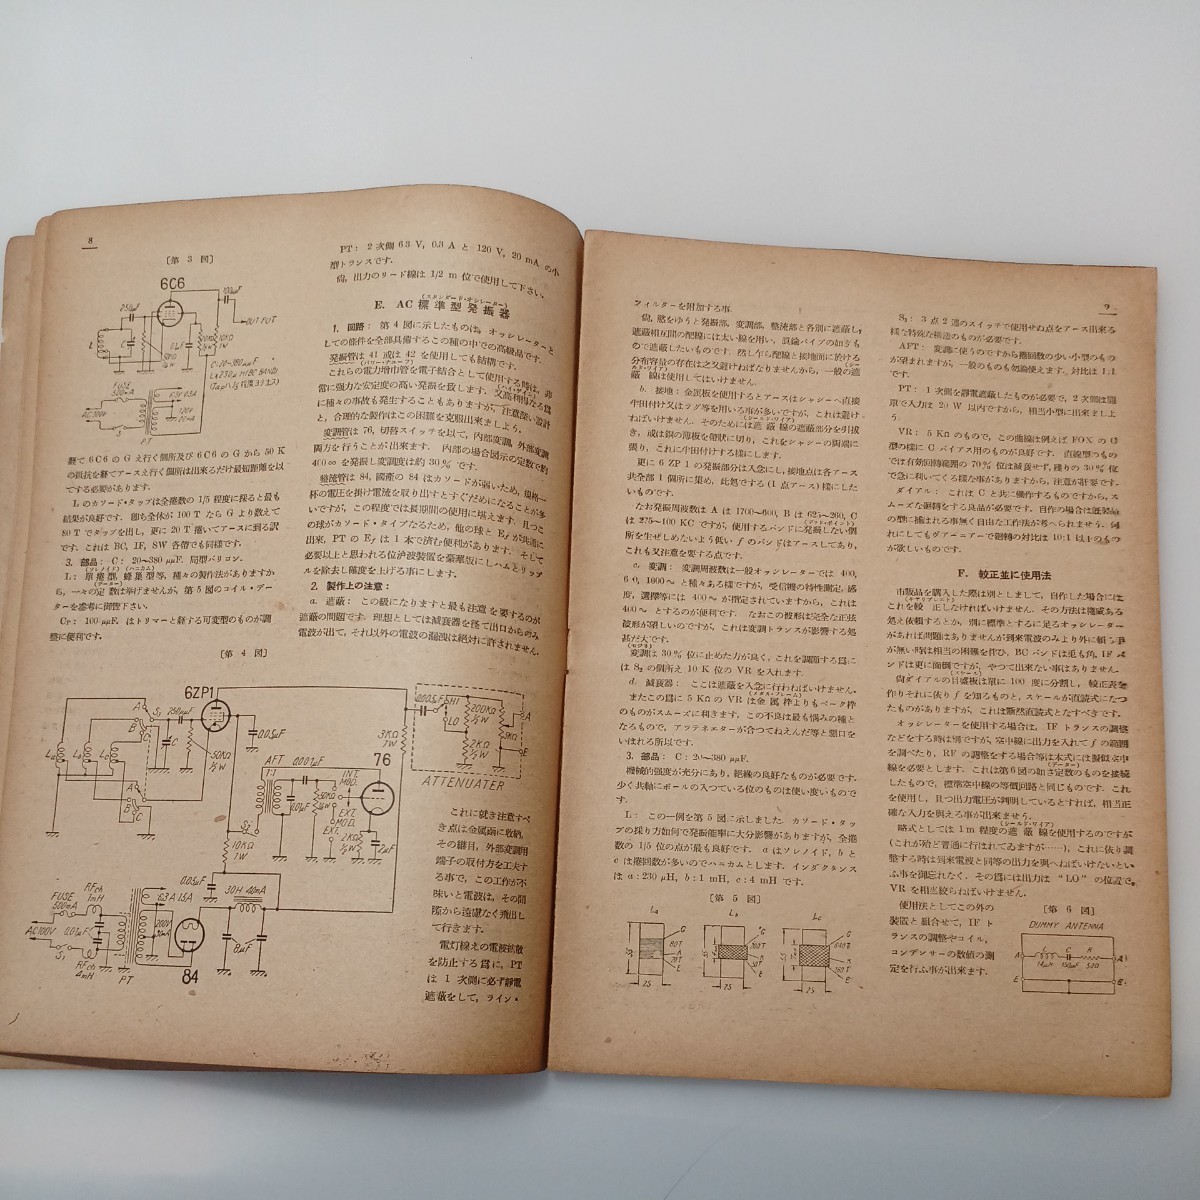 8
[第 3 図]
6C6
250μF
100μF
OUT PUT
L
C
50KΩ
½W
0.1μF
10KΩ
1W
C:20~380μμF
L:230μH(BC BAND)
FUSE
500mA
AC100V
S
6.3V 0.3A
120V
20mA
PT
経て 6C6 の G え行く個所及び 6C6 の G から 50 K
の抵抗を経てアースえ行く個所は出来るだけ最短距離を以
てする必要があります。
L のカソード・タップは全捲数の 1/5 程度に採ると最も
結果が良好です。卽ち全体が 100 T なら G より数えて
80 T でタップを出し、更に 20 T 捲いてアースに到る訳
です。これは BC, IF, SW 各帯でも同様です。
3. 部品: C: 20~380 μμF. 局型バリコン。
L: 單捲型, 蜂巣型等, 種々の製作法がありますか
ら, 一々の定数は挙げませんが, 第 5 図のコイル・デー
ターを参考に御覧下さい。
Cp: 100 μμF. はトリマーと経する可変型のものが調
整に便利です。
[第 4 図]
6ZP1
A
B
C
S₁
250μF
La
Lb
Lc
50KΩ
½W
0.05μF
3KΩ
1W
0.005μF
SH1
LO
200KΩ
½W
2KΩ
½W
5KΩ
A
E
ATTENUATER
76
AFT
1:1
0.001μF
0.01μF
INT.
MOD.
50KΩ
½W
EXT.
MOD.
EXT.
2KΩ
½W
2μF
S₂
10KΩ
1W
0.05μF
30H 40mA
8μF
FUSE
500mA
AC100V
RFch
1mH
0.01μF
S₁
RFch
4mH
PT
6.3A 1.5A
200V
84
PT: 2 次側 6.3 V, 0.3 A と 120 V, 20 mA の小
型トランスです。
尙, 出力のリード線は 1/2 m 位で使用して下さい。
(スタンダード・オシレーター)
E. AC 標準型発振器
1. 回路: 第 4 図に示したものは, オッシレーターと
しての條件を全部具備するこの種の中での高級品です。
発振管は 41 或は 42 を使用しても結構です。
これらの電力増巾管を電子結合として使用する時は, 非
常に強力な安定度の高い発振を致します。又高利得なる爲
に種々の事故も発生することもありますが, 注意深い設計
と, 合理的な製作はこの困難を克服出来ましよう。
変調管は 76, 切替スイッチを以て, 内部変調, 外部変調
両方を行うことが出来ます。内部の場合図示の定数で約
400∞ を発振し変調度は約 30% です。
整流管は 84, 國産の 84 はカソードが弱いため, 規格一
杯の電圧を掛け電流を取り出すとすぐだめになることが多
いですが, この程度では長期間の使用に堪えます。且つこ
の球がカソード・タイプなるため, 他の球と Ef が共通に
出来, PT の Ef は 1 本で済む便利があります。そして
必要以上と思われる位沪波裝置を豪華版にしハムとリップ
ルを除去し確度を上げる事にします。
2. 製作上の注意:
a. 遮蔽: この級になりますと最も注意を要するのが
遮蔽の問題です。理想としては減衰器を経て出口からのみ
電波が出て, それ以外の電波の漏洩は絶対に許されません。
これに就き注意すべ
き点は金属函に收納,
その継目, 外部変調用
端子の取付方を工夫す
る事で, この工作が不
味いと電波は, その間
隙から遠慮なく飛出し
て行きます。
電灯線えの電波拡散
を防止する爲に, PT
は 1 次側に必ず静電
遮蔽をして, ライン・
フィルターを附加する事。
尙, 慾をゆうと発振部, 変調部, 整流部と各別に遮蔽し,
遮蔽相互間の配線には太い線を用い, 眞鍮パイプの如きも
ので遮蔽したいものです。然し乍ら配線と接地面に於ける
分布容量の存在は之又避ければなりませんから, 一般の遮
蔽線は使用してはいけません。
b. 接地: 金属板を使用するとアースはシャシーへ直接
半田付け又はラグ等を用いる事が多いですが, これは避け
ねばいけません。そのためには遮蔽線の遮蔽部分を引拔
き, 或は銅の薄板を帶狀に切り, これをシャシーの両端に
張り, これに半田付けする様にします。
更に 6 ZP 1 の発振部分は入念にし, 接地点は各アース
共全部 1 個所に集め, 此処でする (1 点アース) 様にした
いものです。
なお発振周波数は A は 1700~600, B は 625~260, C
は 275~100 KC ですが, 使用するバンドに発振しない個
所を生ぜしめないよう低い f のバンドはアースしてあり,
これも又注意を要する点です。
c. 変調: 変調周波数は一般オッシレーターでは 400,
600, 1000~ と種々ある様ですが, 受信機の特性測定, 感
度, 選擇等には 400~ が指定されていますから, これは
400~ とするのが便利です。なおこの波形は完全な正弦
波形が望しいのですが, これは変調トランスが影響する処
甚だ大です。
変調は 30% 位に止めた方が良く, これを調節する爲に
は S₂ の個所え 10 K 位の VR を入れます。
d. 減衰器: ここは遮蔽を入念に行わねばいけません。
またこの爲に 5 KΩ の VR は金属枠よりもベーク枠
のものがスムーズに利きます。この不良は最も悩みの種と
なるもので, アッテネエターが合つてねえんだ等と悪口を
いはれる所以です。
3. 部品: C: 20~380 μμF.
機械的强度が充分にあり, 絶縁の良好なものが必要です。
少く共軸にボールの入つている位のものは使い度いもので
す。
L: この一例を第 5 図に示しました カソード・タッ
プの採り方如何で発振能率に大分影響がありますが, 全捲
数の 1/5 位の点が最も良好です。a はソレノイド, b と
c は捲回数が多いのでハニカムとします。インダクタンス
は a: 230 μH, b: 1 mH, c: 4 mH です。
[第 5 図]
La
Lb
Lc
G
K
E
80T
20T
25
S₃: 3 点 2 連のスイッチで使用せぬ点をアース出來る
様な特殊な構造のものが必要です。
AFT: 変調に使うのですから捲回数の少い小型のもの
が望まれますが, 一般のものも勿論使えます。対比は 1:1
です。
PT: 1 次側を靜電遮蔽したものが必要で, 2 次側は簡
單で入力は 20 W 以内ですから, 相当小型に出来ましよ
う。
VR: 5 KΩ のもので, この曲線は例えば FOX の G
型の様に C バイアス用のものが良好です。直線型のもの
では有効回轉範囲の 70% 位は減衰せず, 残りの 30% 位
で急に利いてくる様な事がありますから, 注意が肝要です。
ダイアル: これは C と共に働作するものですから, ス
ムーズな廻轉をする良品が必要です。自作の場合は既製品
の型に捕はれる事無く自由な工作法が考へられます。何
れにしてもヴアーニアーで廻轉の対比は 10:1 以上のもの
が欲しいものです。
F. 較正並に使用法
市販品を購入した際は別としまして, 自作した場合には
これを較正しなければいけません。その方法は権威ある
処え依頼するとか, 別に標準とするに足るオッシレーター
があれば問題はありませんが到来電波のみより外に頼る事
が無い時は相当の困難を伴ひ, BC バンドは兎も角, IF バ
ンドは更に面倒ですが, やつて出来ない事はありません。
尙ダイアルの目盛板は單に 100 度に分割し, 較正表を
作りそれに依り f を知るものと, スケールが直読式になつ
たものがありますが, これは断然直読式となすべきです。
オッシレーターを使用する場合は, IF トランスの調整
などをする時は別ですが, 空中線に出力を入れて f の範囲
を調べたり, RF の調整をする場合等は本式には擬似空中
線を必要とします。これは第 6 図の如き定数のものを接続
したもので, 標準空中線の等價回路と同じものです。これ
を使用し, 且つ出力電圧が判明しているとすれば, 相当正
確な入力を與える事が出来ませう。
略式としては 1 m 程度の遮蔽線を使用するのですが
(これが殆ど普通に行はれてゐますが……), これに依り調
整する時は到来電波と同等の出力を與へねばいけないとい
ふ事を御忘れなく。その爲には出力は "LO" の位置で,
VR を相当絞らねばいけません。
使用法としてこの外の
装置と組合せて, IF ト
ランスの調整やコイル,
コンデンサーの数値の測
定を行ふ事が出来ます。
[第 6 図]
DUMMY ANTENNA
A
L
C
R
A'
E
E'